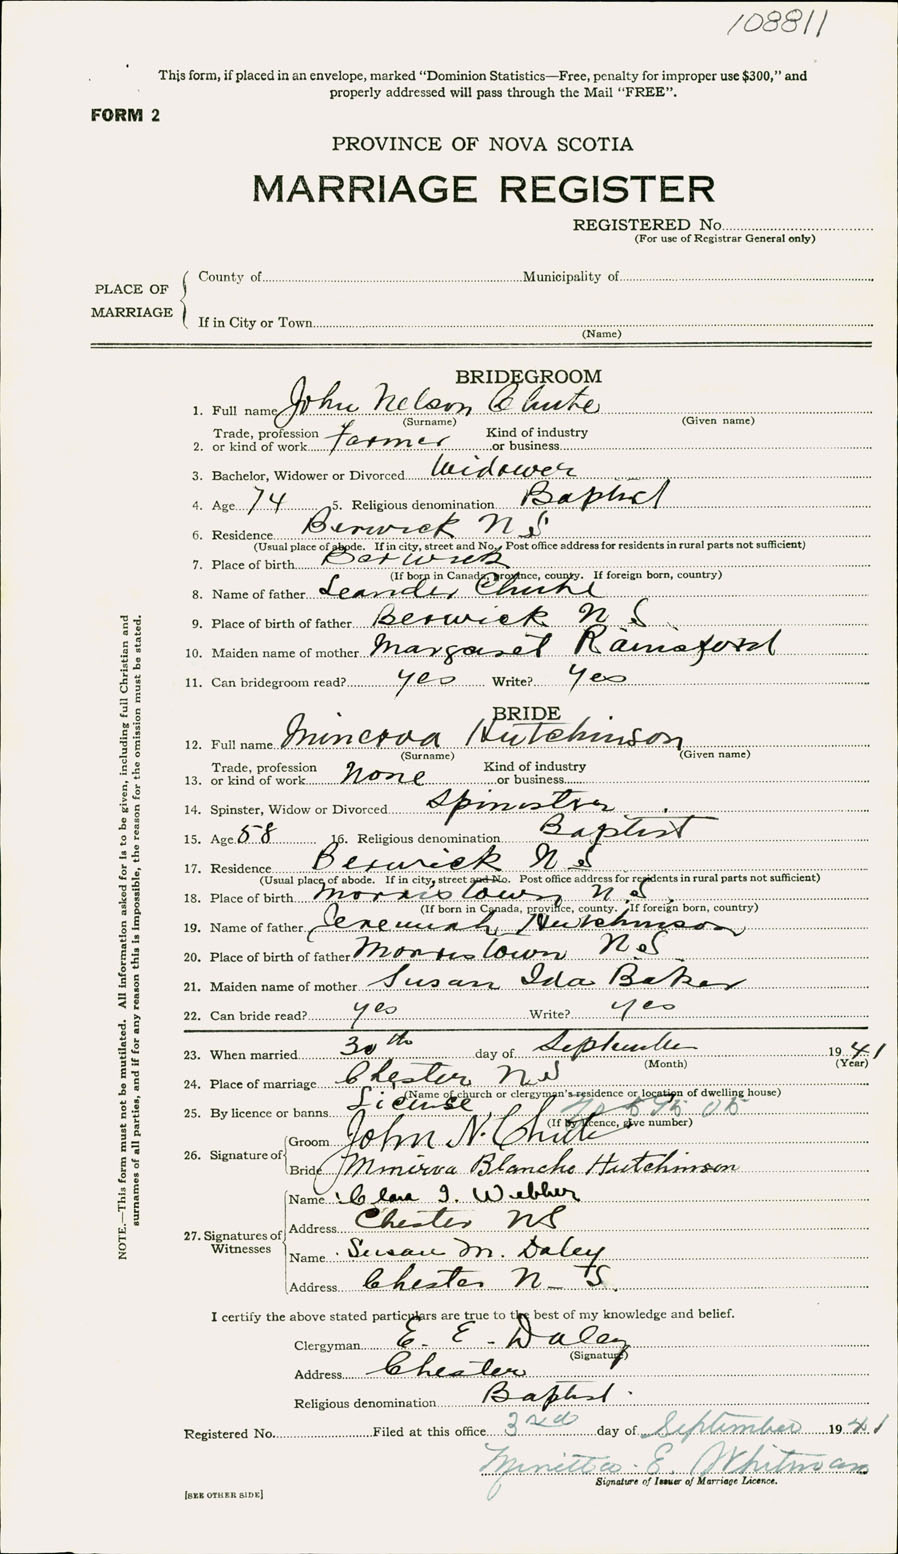 108811
This form, if placed in an envelope, marked "Dominion Statistics—Free, penalty for improper use $300," and
properly addressed will pass through the Mail "FREE".
FORM 2
PROVINCE OF NOVA SCOTIA
MARRIAGE REGISTER
REGISTERED No.
(For use of Registrar General only)
PLACE OF MARRIAGE
County of Municipality of
If in City or Town
(Name)
BRIDEGROOM
1. Full name John Nelson Chute
(Surname) (Given name)
Trade, profession Kind of industry
2. or kind of work Farmer or business
3. Bachelor, Widower or Divorced Widower
4. Age 74 5. Religious denomination Baptist
6. Residence Berwick N S
(Usual place of abode. If in city, street and No. Post office address for residents in rural parts not sufficient)
7. Place of birth Berwick
(If born in Canada, province, county. If foreign born, country)
8. Name of father Leander Chute
9. Place of birth of father Berwick N S
10. Maiden name of mother Margaret Rainsford
11. Can bridegroom read? yes Write? yes
BRIDE
12. Full name Minerva Hutchinson
(Surname) (Given name)
Trade, profession Kind of industry
13. or kind of work None or business
14. Spinster, Widow or Divorced Spinster
15. Age 58 16. Religious denomination Baptist
17. Residence Berwick N S
(Usual place of abode. If in city, street and No. Post office address for residents in rural parts not sufficient)
18. Place of birth Morristown N.S.
(If born in Canada, province, county. If foreign born, country)
19. Name of father Jeremiah Hutchinson
20. Place of birth of father Morristown N S
21. Maiden name of mother Susan Ida Baker
22. Can bride read? yes Write? yes
23. When married 30th day of September 1941
(Month) (Year)
24. Place of marriage Chester N S
(Name of church or clergyman's residence or location of dwelling house)
25. By licence or banns License
(If by licence, give number)
26. Signature of Groom John N. Chute
Bride Minirva Blanche Hutchinson
27. Signatures of Witnesses
Name Clara I. Webber
Address Chester NS
Name Susan M. Daley
Address Chester N-S.
I certify the above stated particulars are true to the best of my knowledge and belief.
Clergyman E. E. Daley
(Signature)
Address Chester
Religious denomination Baptist.
Registered No. Filed at this office 3rd day of September 1941
E. Whitman
Signature of Issuer of Marriage Licence.
[SEE OTHER SIDE]
NOTE.—This form must not be mutilated. All information asked for is to be given, including full Christian and
surnames of all parties, and if for any reason this is impossible, the reason for the omission must be stated.